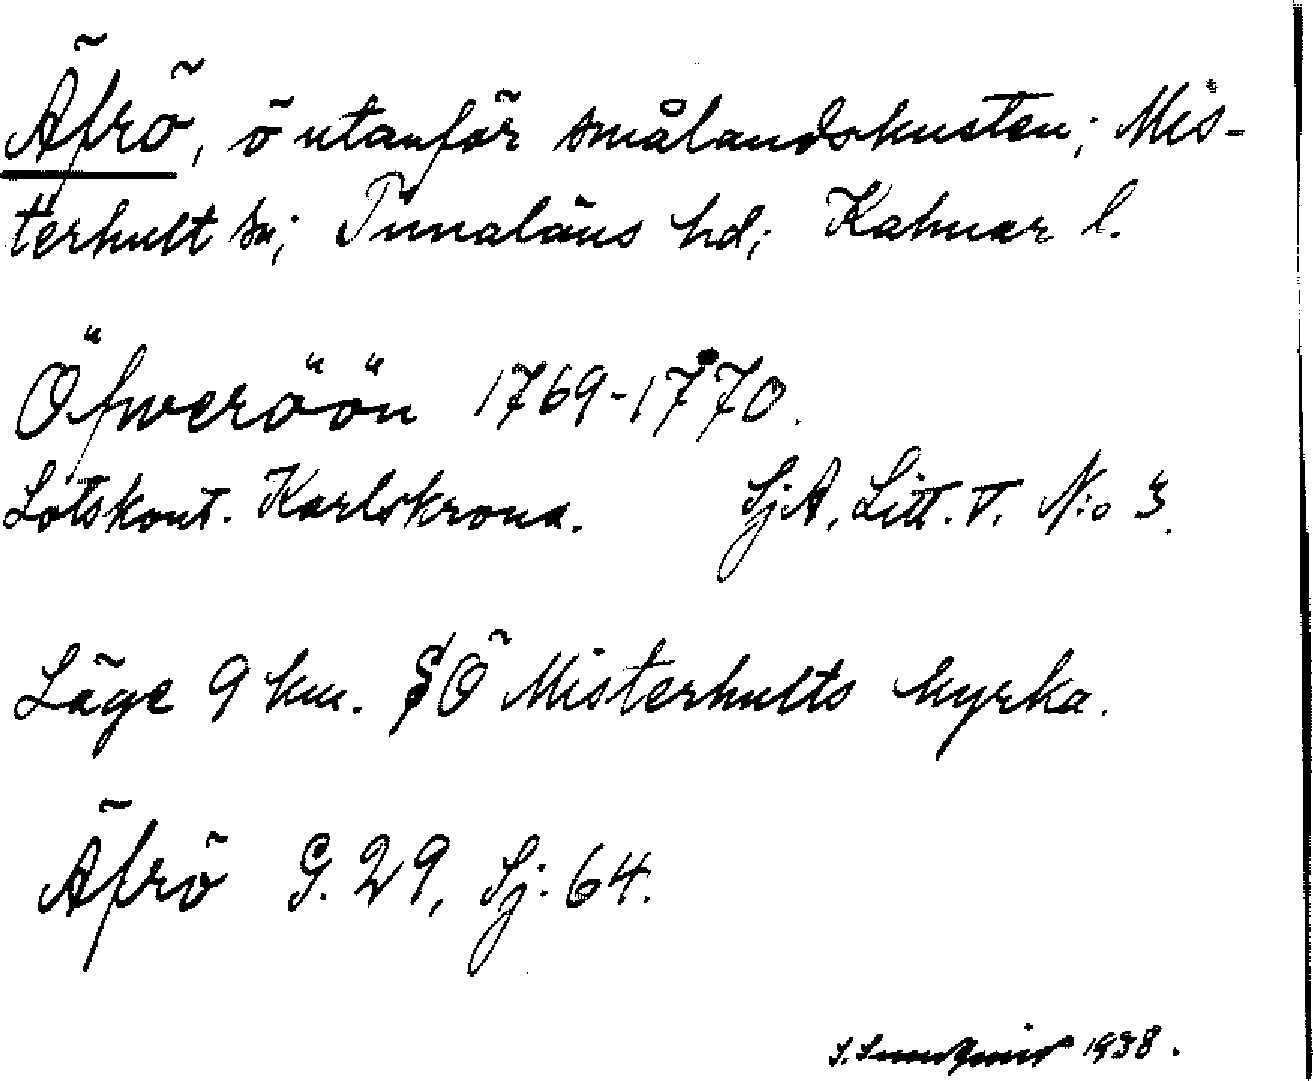 Äfrö, ö utanför smålandskusten; Mis-
terhult sn; Tunaläns hd; Kalmar l.
Öfweröön 1769-1770.
Lotskont. Karlskrona. SjA, Litt. V. N:o 3.
Läge 9 km. SÖ Misterhults kyrka.
Äfrö G. 29, Sj. 64.
1938.